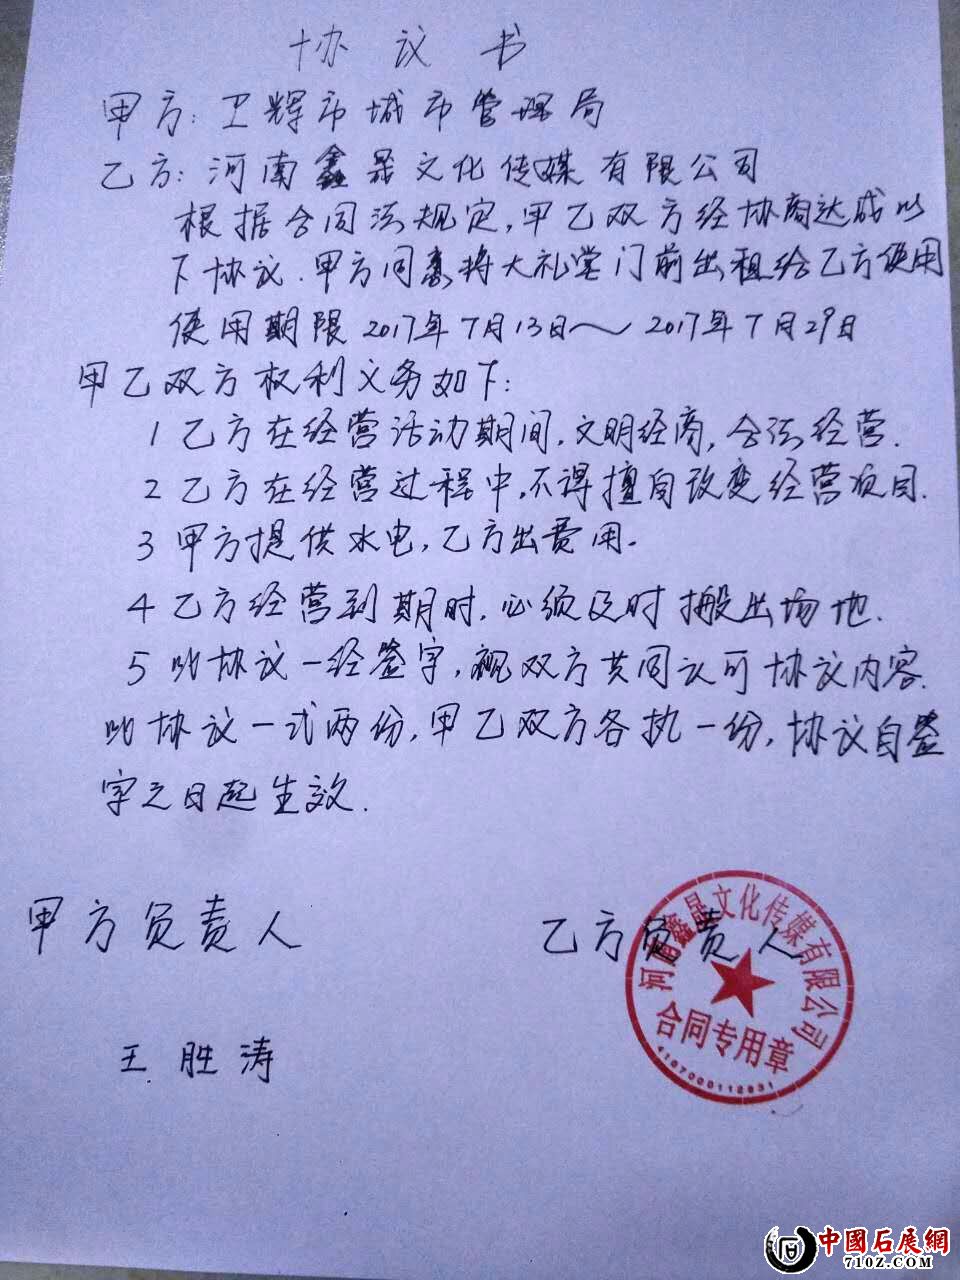 协议书
甲方:卫辉市城市管理局
乙方:河南鑫晟文化传媒有限公司
根据合同法规定,甲乙双方经协商达成以
下协议.甲方同意将大礼堂门前出租给乙方使用
使用期限2017年7月13日~2017年7月29日
甲乙双方权利义务如下:
1乙方在经营活动期间,文明经商,合法经营.
2乙方在经营过程中,不得擅自改变经营项目.
3甲方提供水电,乙方出费用.
4乙方经营到期时,必须及时搬出场地.
5此协议一经签字,视双方共同认可协议内容.
此协议一式两份,甲乙双方各执一份,协议自签
字之日起生效.
甲方负责人
乙方负责人
王胜涛
河南鑫晟文化传媒有限公司
合同专用章
中國石展網
710Z.COM